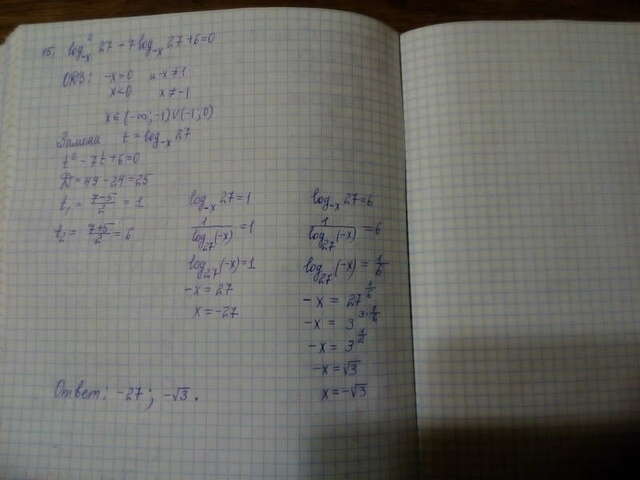 15) log²₋ₓ 27 - 7log₋ₓ 27 + 6 = 0
ОВЗ: -x>0 и -x≠1
x<0 x≠-1
x∈(-∞;-1)∪(-1;0)
Замена t = log₋ₓ 27
t² - 7t + 6 = 0
D = 49 - 24 = 25
t₁ = (7-5)/2 = 1
t₂ = (7+5)/2 = 6
log₋ₓ 27 = 1
1/log₂₇(-x) = 1
log₂₇(-x) = 1
-x = 27
x = -27
log₋ₓ 27 = 6
1/log₂₇(-x) = 6
log₂₇(-x) = 1/6
-x = 27^(1/6)
-x = 3^(3·1/6)
-x = 3^(1/2)
-x = √3
x = -√3
Ответ: -27; -√3.